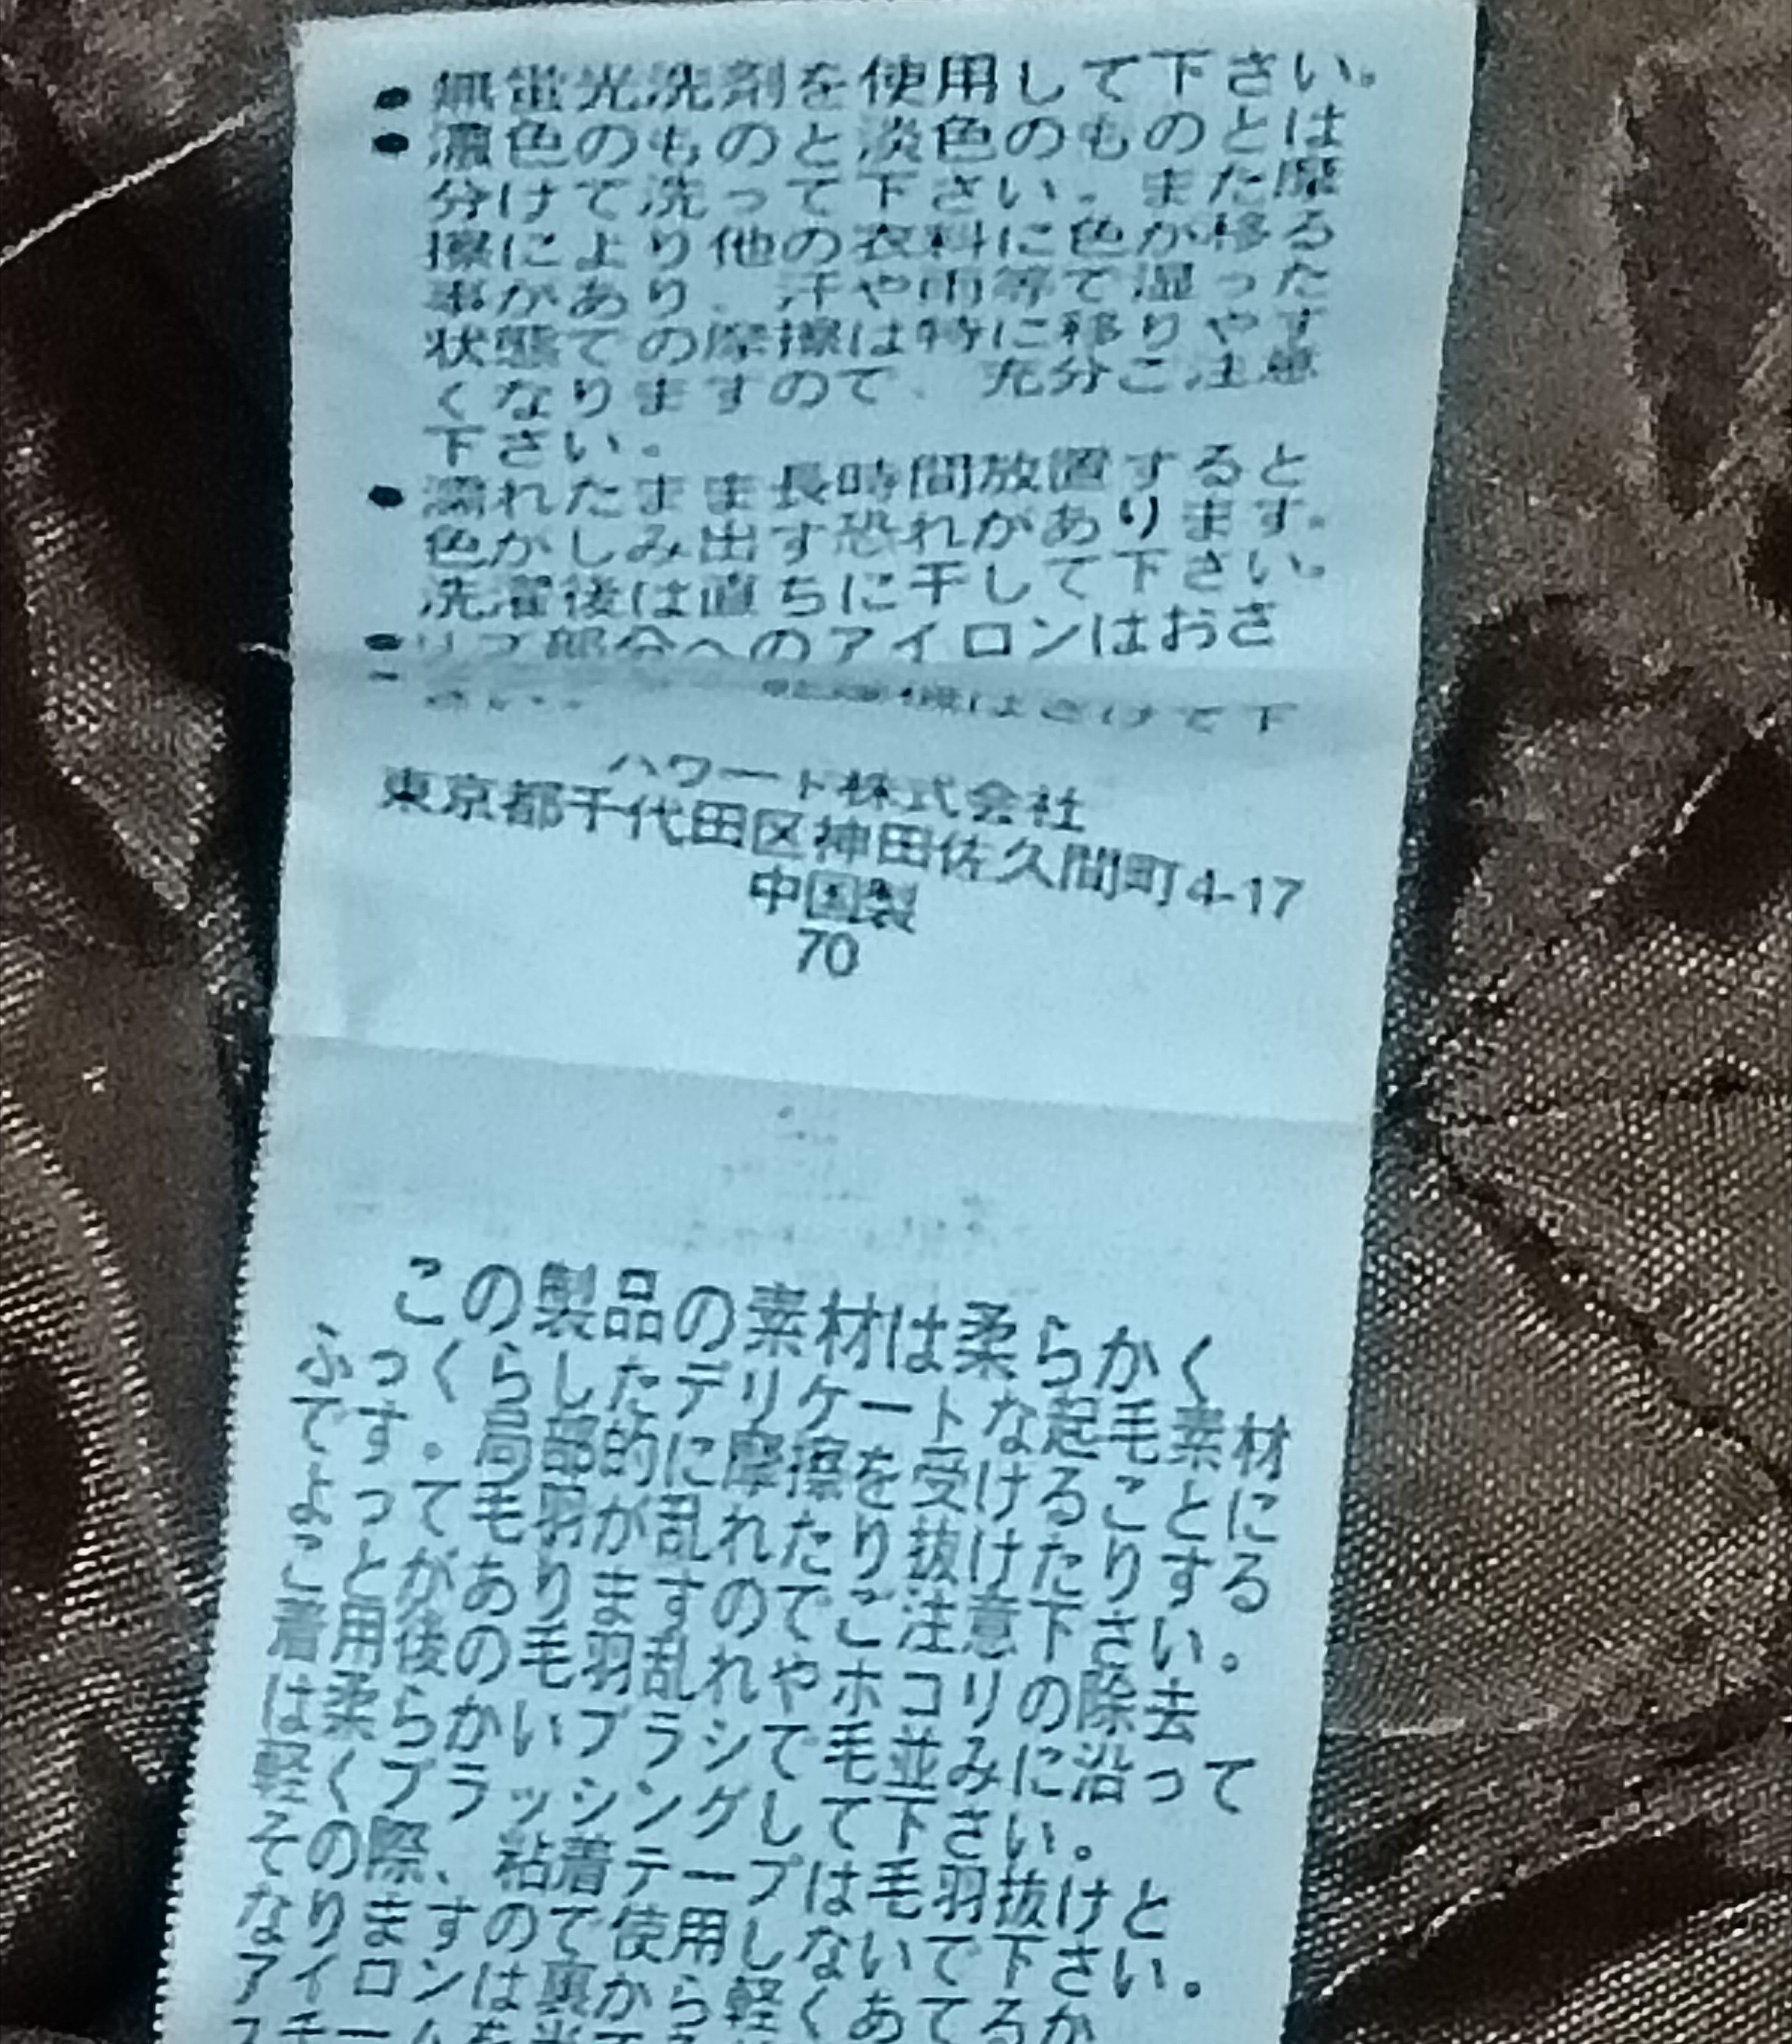 ● 無蛍光洗剤を使用して下さい。
● 濃色のものと淡色のものとは
分けて洗って下さい。また摩
擦により他の衣料に色が移る
事があり、汗や雨等で湿った
状態での摩擦は特に移りやす
くなりますので、充分ご注意
下さい。
● 濡れたまま長時間放置すると
色がしみ出す恐れがあります。
洗濯後は直ちに干して下さい。
● リブ部分へのアイロンはおさ
はさけて下
さい。
ハワード株式会社
東京都千代田区神田佐久間町4-17
中国製
70
この製品の素材は柔らかく
ふっくらしたデリケートな起毛素材
です。局部的に摩擦を受けることに
よって毛羽が乱れたり抜けたりする
ことがありますのでご注意下さい。
着用後の毛羽乱れやホコリの除去
は柔らかいブラシで毛並みに沿って
軽くブラッシングして下さい。
その際、粘着テープは毛羽抜けと
なりますので使用しないで下さい。
アイロンは裏から軽くあてるか
スチームを当て